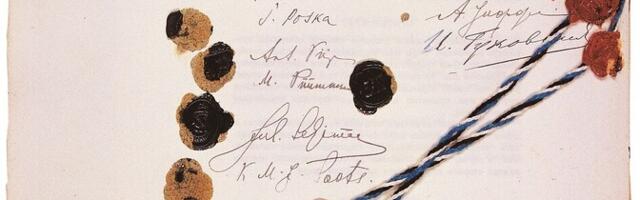 J. Poska
Ant. Piip
M. Püümann
Jul. Seljamaa
Soots.
А. Иоффе
И. Гуковский